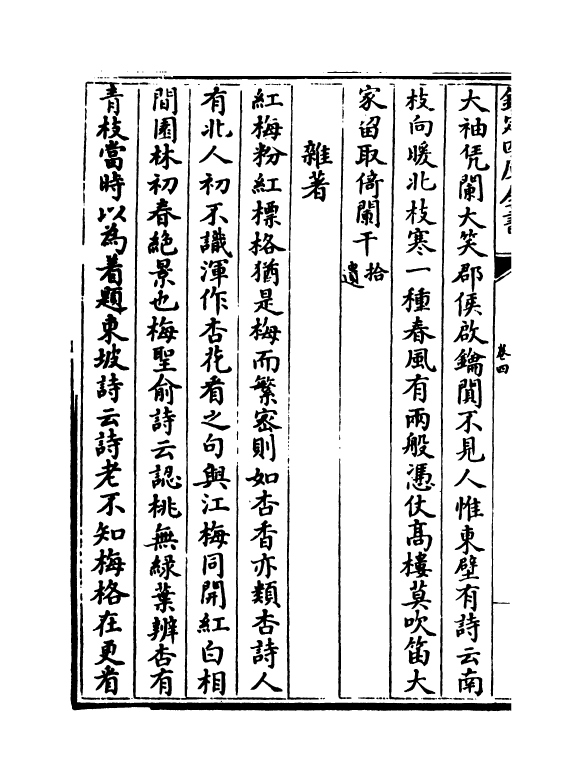 欽定四庫全書
卷四
大袖凭闌大笑郡侯啟鑰閴不見人惟東壁有詩云南
枝向暖北枝寒一種春風有兩般憑仗髙樓莫吹笛大
家留取倚闌干拾遺
雜著
紅梅粉紅標格猶是梅而繁密則如杏香亦類杏詩人
有北人初不識渾作杏花看之句與江梅同開紅白相
間園林初春絶景也梅聖俞詩云認桃無緑葉辨杏有
青枝當時以為着題東坡詩云詩老不知梅格在更㸔